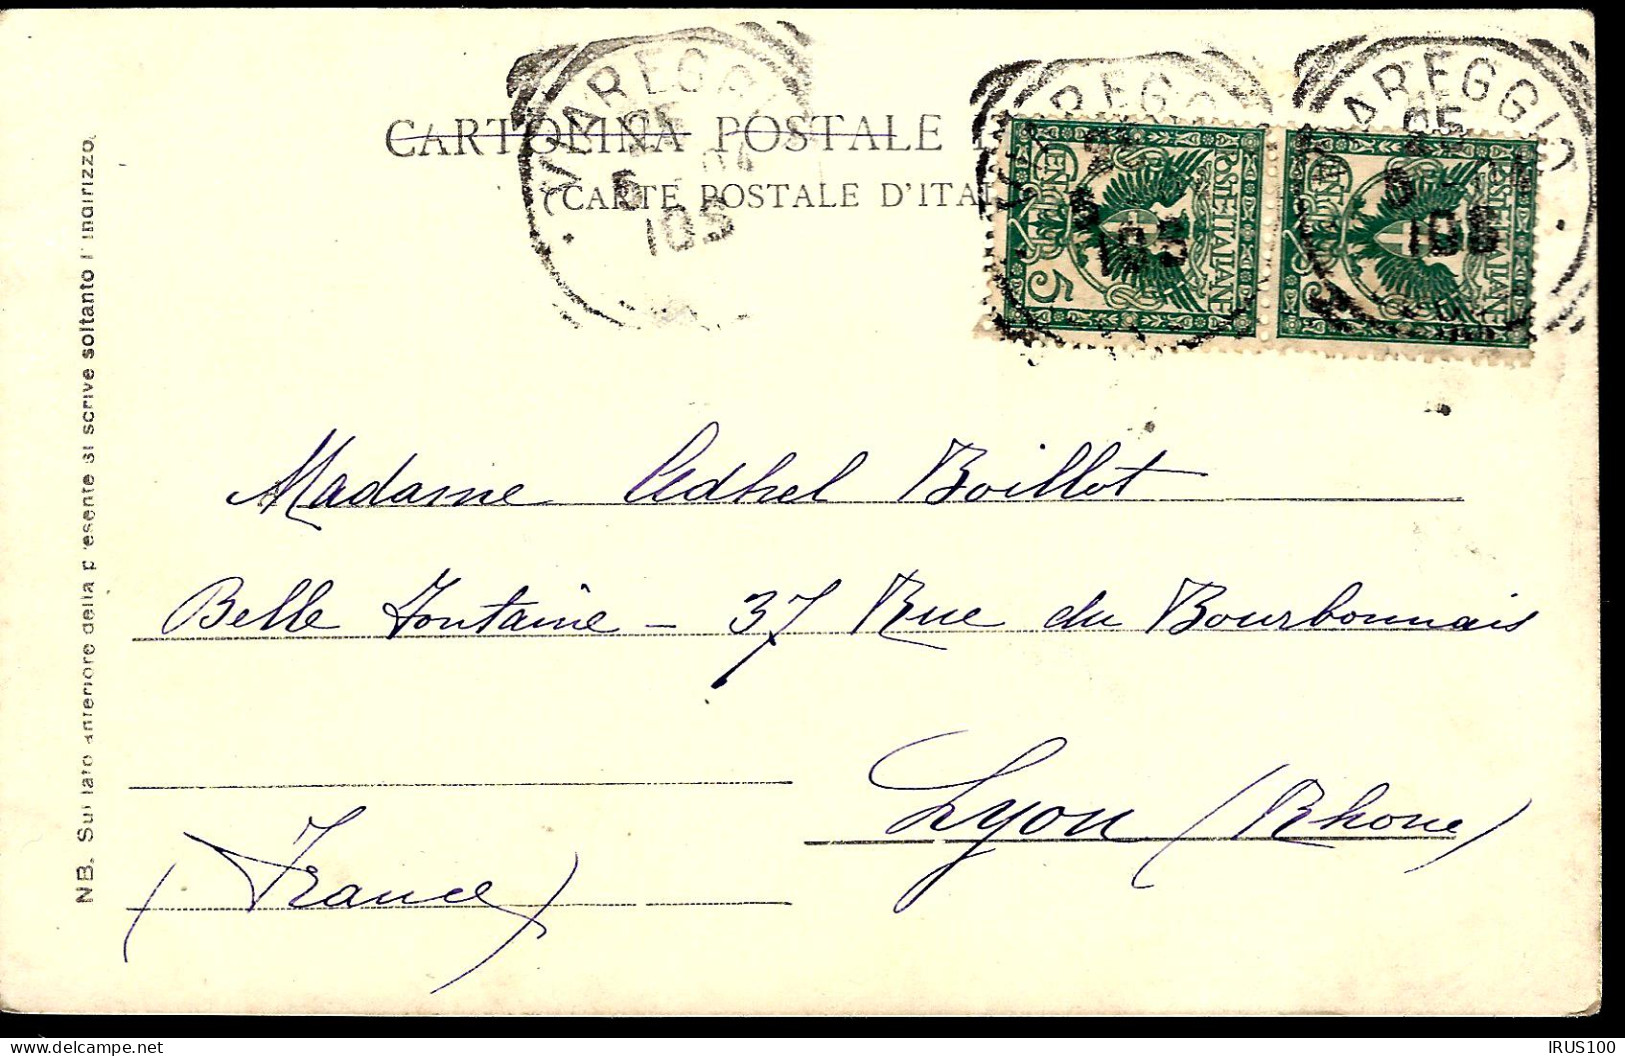 CARTOLINA POSTALE
(CARTE POSTALE D'ITAL
VIAREGGIO
6
105
POSTE ITALIANE
CENT 5
POSTE ITALIANE
CENT 5
VIAREGGIO
105
VIAREGGIO
105
Madame Adhel Boillot
Belle Fontaine – 37 Rue du Bourbonnais
Lyon (Rhone)
(France)
NB. Sul lato anteriore della presente si scrive soltanto l'indirizzo.
IRUS100
delcampe.net